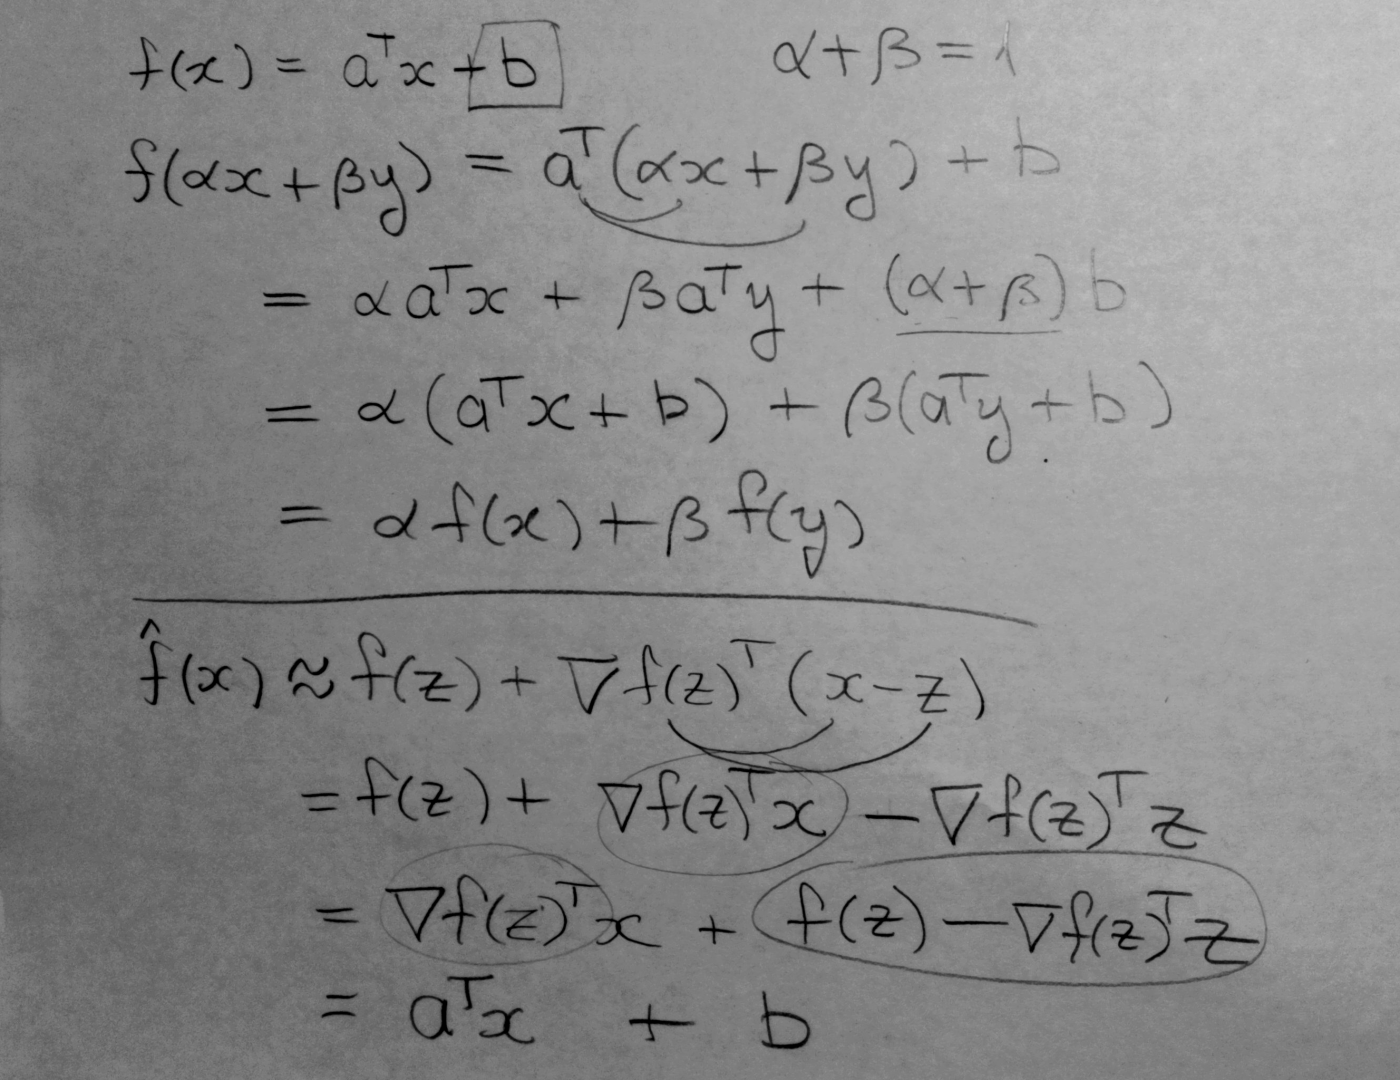 f(x) = aᵀx + b α + β = 1
f(αx + βy) = aᵀ(αx + βy) + b
= α aᵀx + β aᵀy + (α + β) b
= α (aᵀx + b) + β(aᵀy + b)
= α f(x) + β f(y)
f̂(x) ≈ f(z) + ∇f(z)ᵀ (x - z)
= f(z) + ∇f(z)ᵀx - ∇f(z)ᵀ z
= ∇f(z)ᵀx + f(z) - ∇f(z)ᵀz
= aᵀx + b